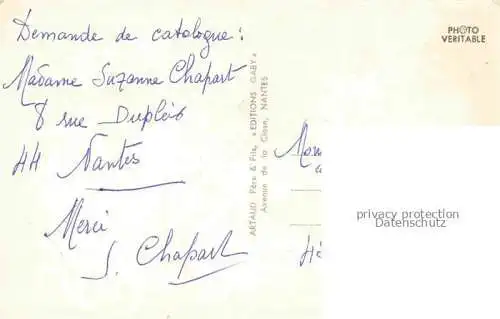 Demande de catalogue :
Madame Suzanne Chapart
8 rue Dupleix
44 Nantes
Merci
S. Chapart
ARTAUD Père & Fils, « EDITIONS GABY »
Avenue de la Close, NANTES
PHOTO
VERITABLE
privacy protection
Datenschutz